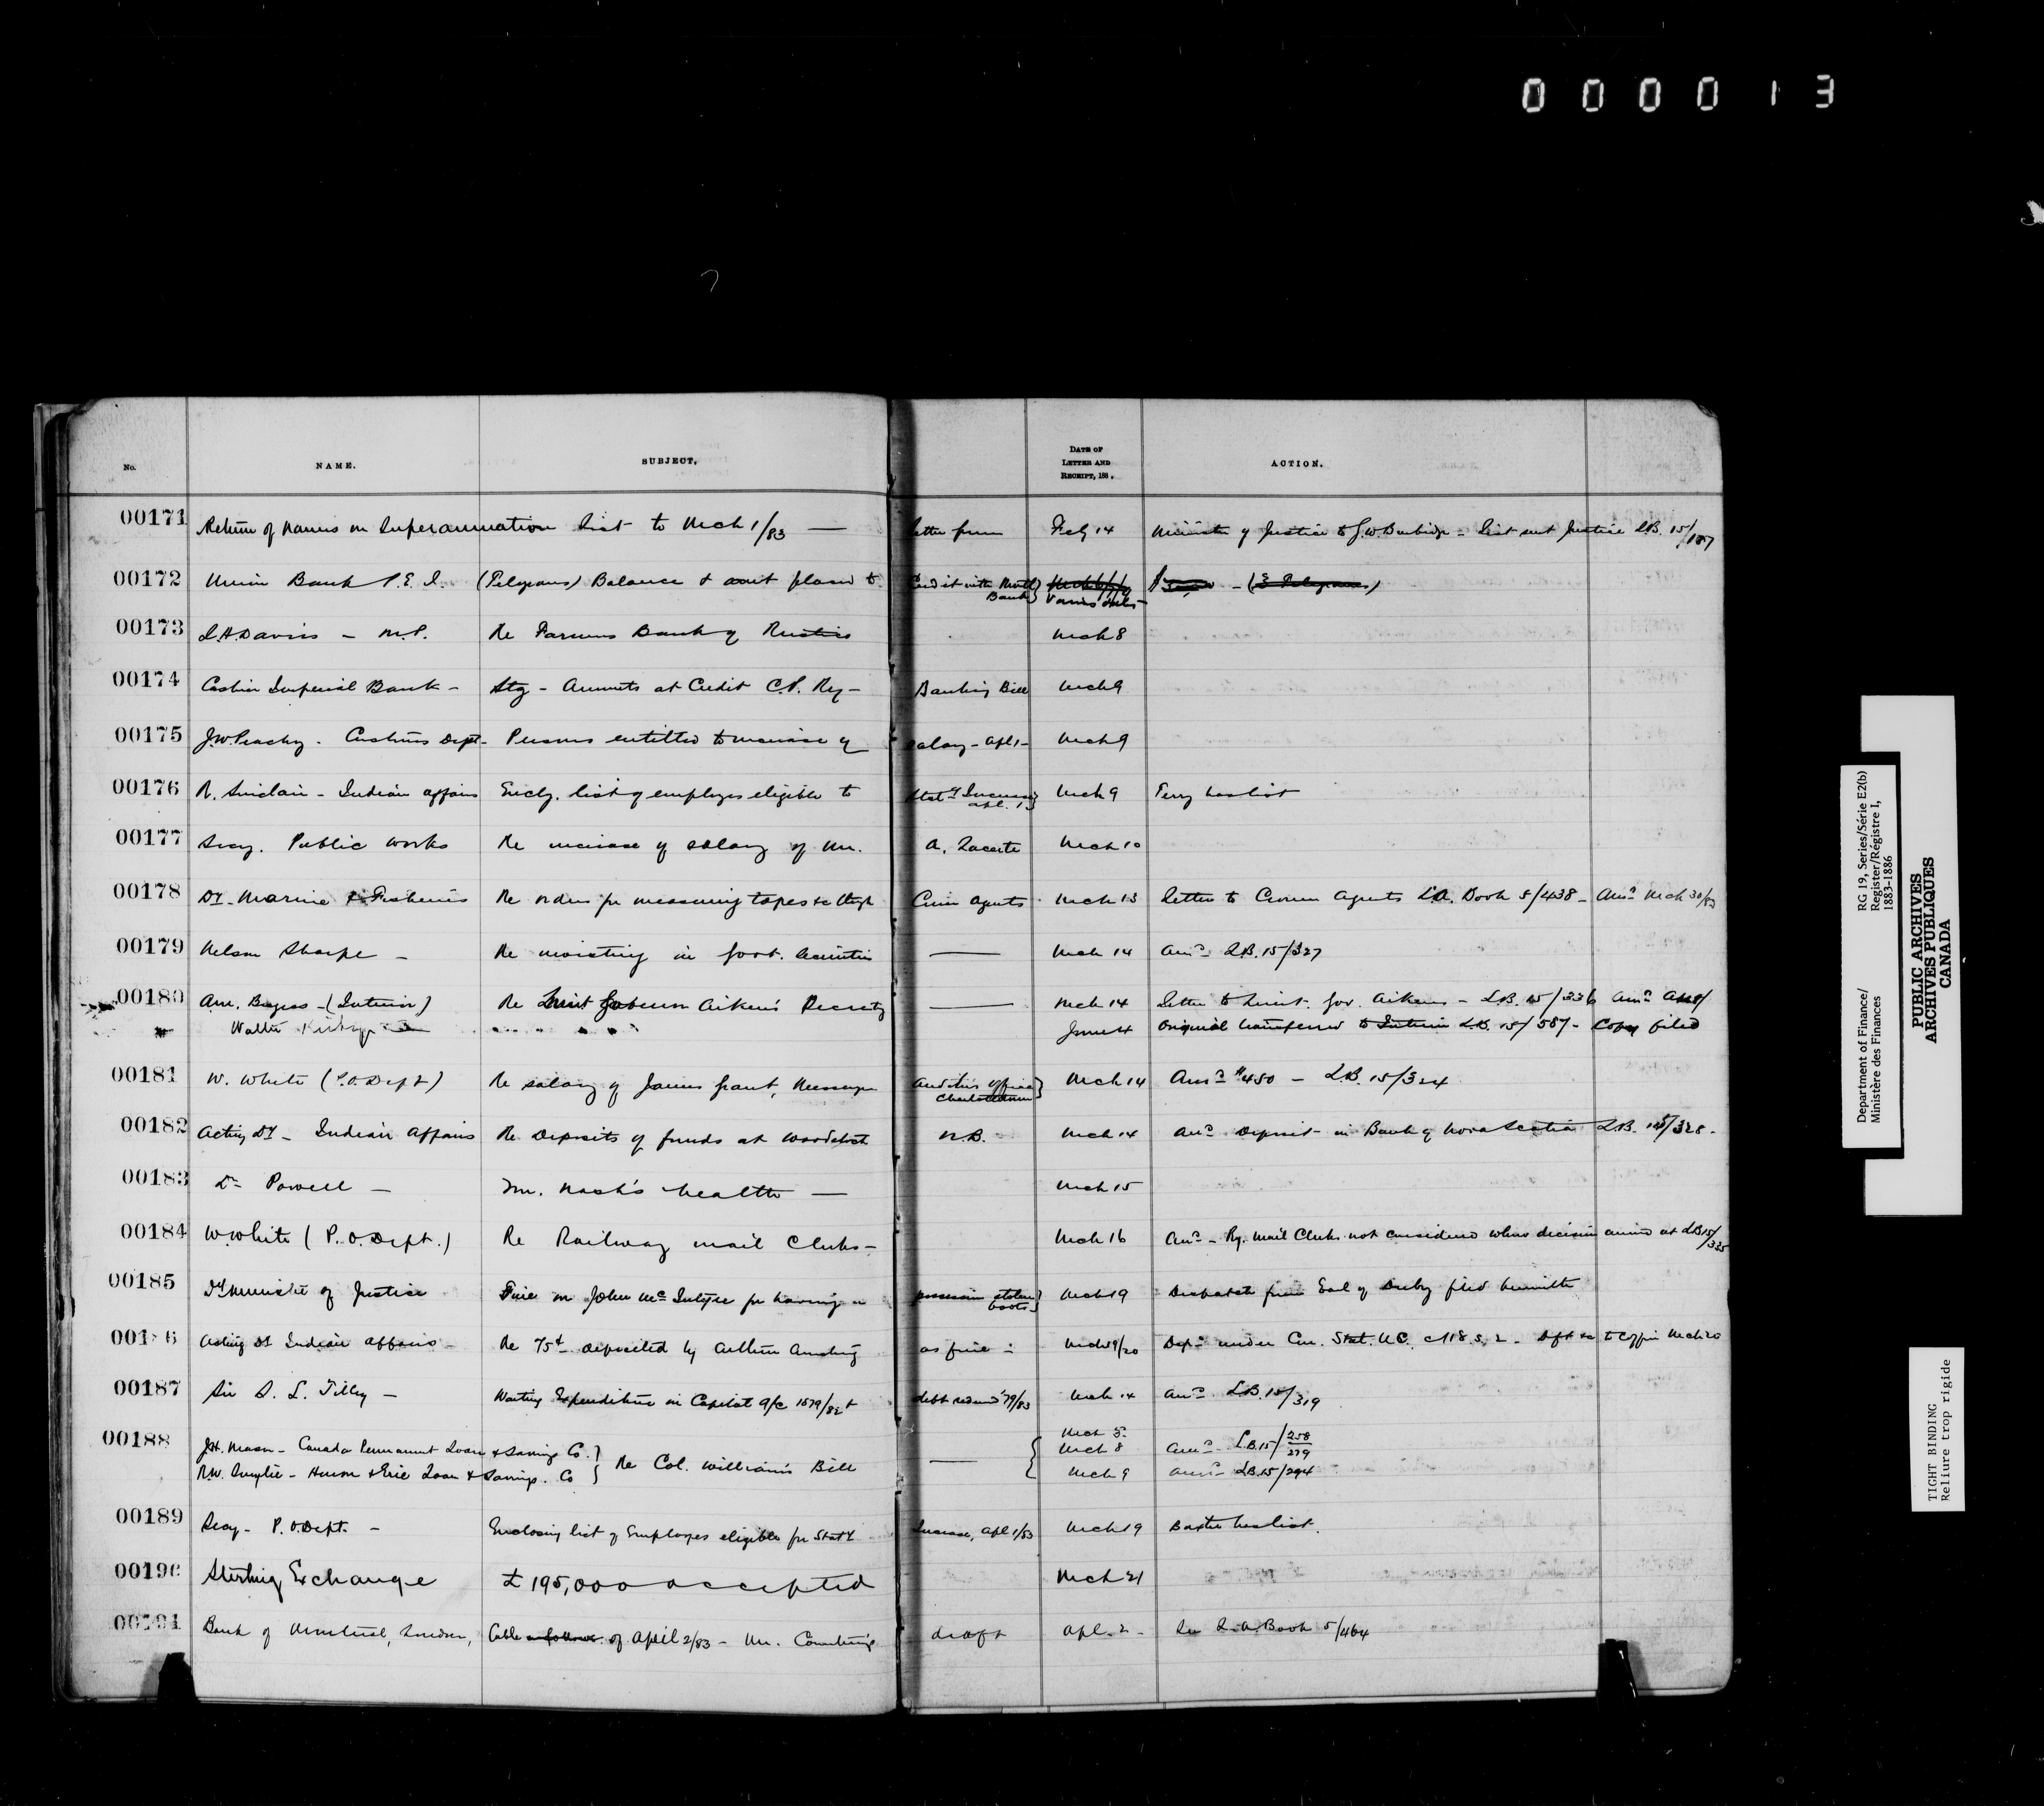 000013
No. NAME. SUBJECT. DATE OF LETTER AND RECEIPT, 188 . ACTION.
00171 Return of Names on Superannuation List to Mch 1/83 — letter from Feby 14 Minister of Justice to G.W. Burbidge - List sent Justice L.B. 15/187
00172 Union Bank P.E.I. (Telegrams) Balance & amt placed to Credit with Montl Bank } Various dates -
00173 L.H. Davies - M.P. Re Farmers Bank of Rustico Mch 8
00174 Cashier Imperial Bank - Stg - Amounts at Credit C.P. Ry - Banking Bill Mch 9
00175 J.W. Peachy - Customs Dept - Persons entitled to increase of salary - Apl 1 - Mch 9
00176 R. Sinclair - Indian Affairs Encly. list of employes eligible to Staty Increase apl. 1 } Mch 9 Terry has list
00177 Secy. Public Works Re increase of salary of Mr. A. Lacerte Mch 10
00178 Dy - Marine & Fisheries Re orders for measuring tapes &c thgh Crown Agents Mch 13 Letter to Crown Agents L.A. Book 5/438 - Ansd Mch 30/83
00179 Nelson Sharpe - Re investing in Govt. Securities — Mch 14 Ansd L.B. 15/327
00180 A.M. Burgess - (Interior) Re Lieut Governor Aikens' Secretary — Mch 14 Letter to Lieut. Gov. Aikens - L.B. 15/336 Ansd
Walter June 4 Original transferred to Interior L.B. 15/587 - Copy filed
00181 W. White (P.O. Dept) Re salary of James Grant, Messenger Auditors office Charlottetown } Mch 14 Ansd $450 - L.B. 15/324
00182 Acting Dy - Indian Affairs Re Deposits of funds at Woodstock N.B. Mch 14 Ansd Deposit in Bank of Nova Scotia L.B. 15/328 -
00183 Dr Powell - Mr. Nash's health — Mch 15
00184 W. White (P.O. Dept.) Re Railway mail Clerks - Mch 16 Ansd - Ry. Mail Clerks not considered when decision arrived at L.B. 15/335
00185 Dy Minister of Justice Fine on John McIntyre for having in possession stolen boots } Mch 19 Despatch from Earl of Derby filed herewith
00186 Acting Dy Indian Affairs - Re 75¢ deposited by Arthur as fine - Mch 19/20 Depd under Con. Stat. U.C. c 118 s. 2 - Dft to Coffin Mch 20
00187 Sir S. L. Tilley - Wanting Expenditure on Capital a/c 1879/82 & debt redeemed '79/83 Mch 14 Ansd L.B. 15/319
00188 J.H. Mason - Canada Permanent Loan & Savings Co. } Re Col. Williams Bill — { Mch 5 Mch 8 Ansd L.B. 15/258/279
R.W. Smylie - Huron & Erie Loan & Savings. Co Mch 9 Ansd L.B. 15/294
00189 Secy - P.O. Dept. - Enclosing list of Employes eligible for Staty Increase, Apl 1/83 Mch 19 Baxter has list.
00190 Sterling Exchange £195,000 accepted Mch 21
00191 Bank of Montreal, London, Cable as follows of April 2/83 - Mr. draft Apl. 2 - See L.A. Book 5/464
Department of Finance/
Ministère des Finances
RG 19, Series/Série E2(b)
Register/Régistre 1,
1883-1886
PUBLIC ARCHIVES
ARCHIVES PUBLIQUES
CANADA
TIGHT BINDING
Reliure trop rigide